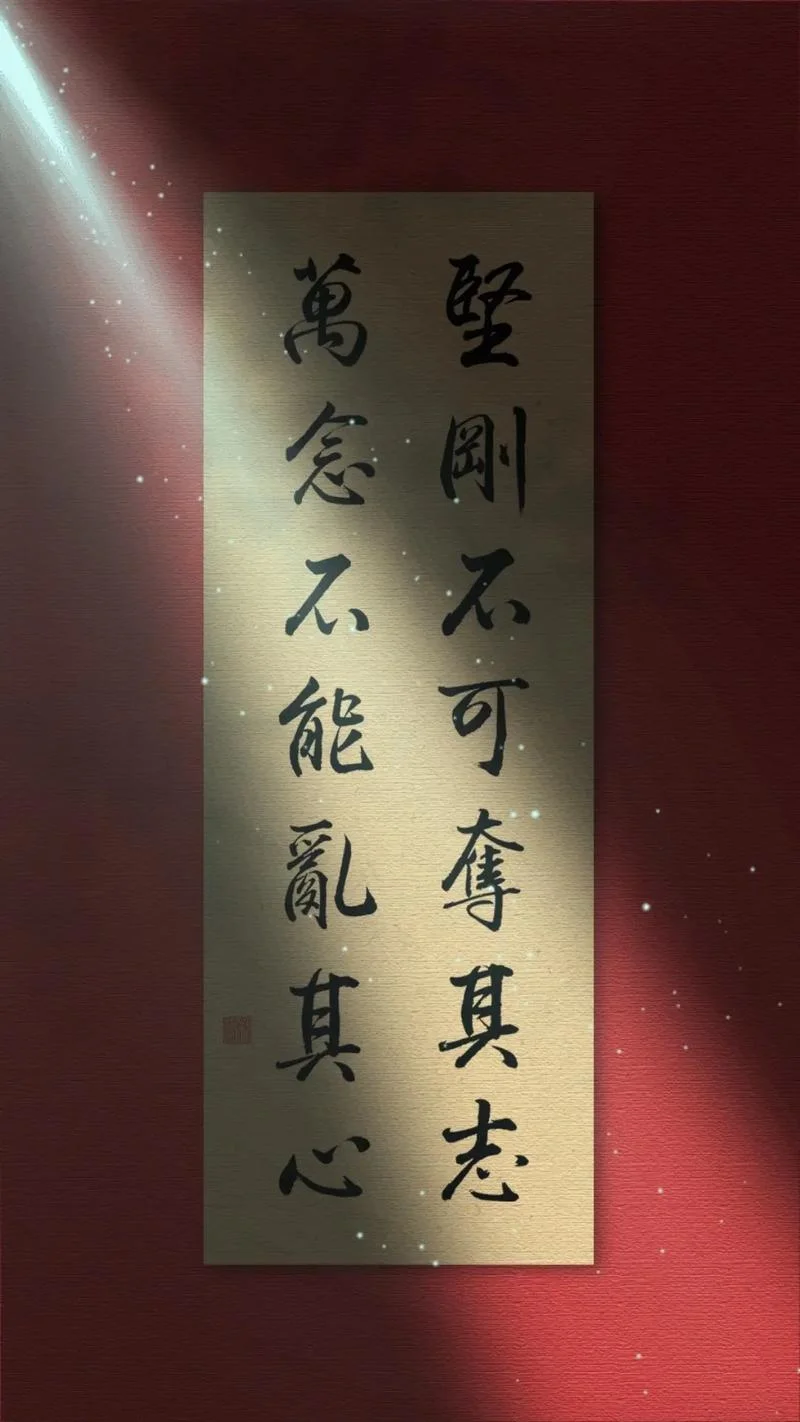 堅剛不可奪其志
萬念不能亂其心